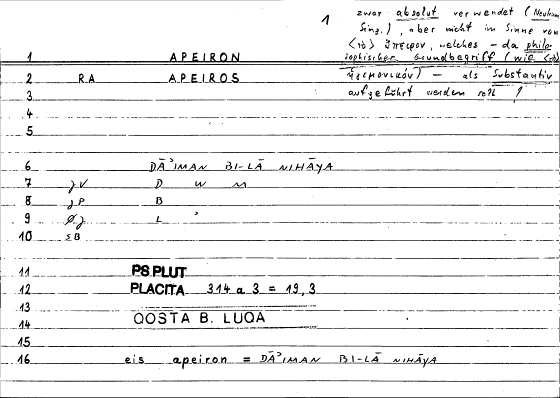 1
zwar absolut verwendet (Neutrum
Sing.), aber nicht im Sinne von
<τὸ> ἄπειρον, welches – da philo-
sophischer Grundbegriff (wie <τὸ>
ἡγεμονικόν) – als Substantiv
aufgeführt werden soll !
1 APEIRON
2 RA APEIROS
3
4
5
6 DĀʾIMAN BI-LĀ NIHĀYA
7 jV D W M
8 jP B
9 L ʾ
10 SB
11 PS.PLUT
12 PLACITA 314 a 3 = 19,3
13
14 QOSTA B. LUQA
15
16 eis apeiron = DĀʾIMAN BI-LĀ NIHĀYA